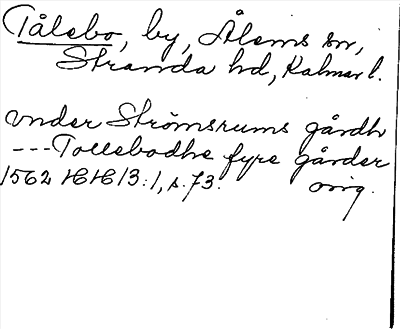 Tålebo, by, Ålems sn,
Stranda hd, Kalmar l.
vnder Strömsrums gårdh
---Tollebodhe fyre gårder
1562 HH 13:1, s. 73. orig.